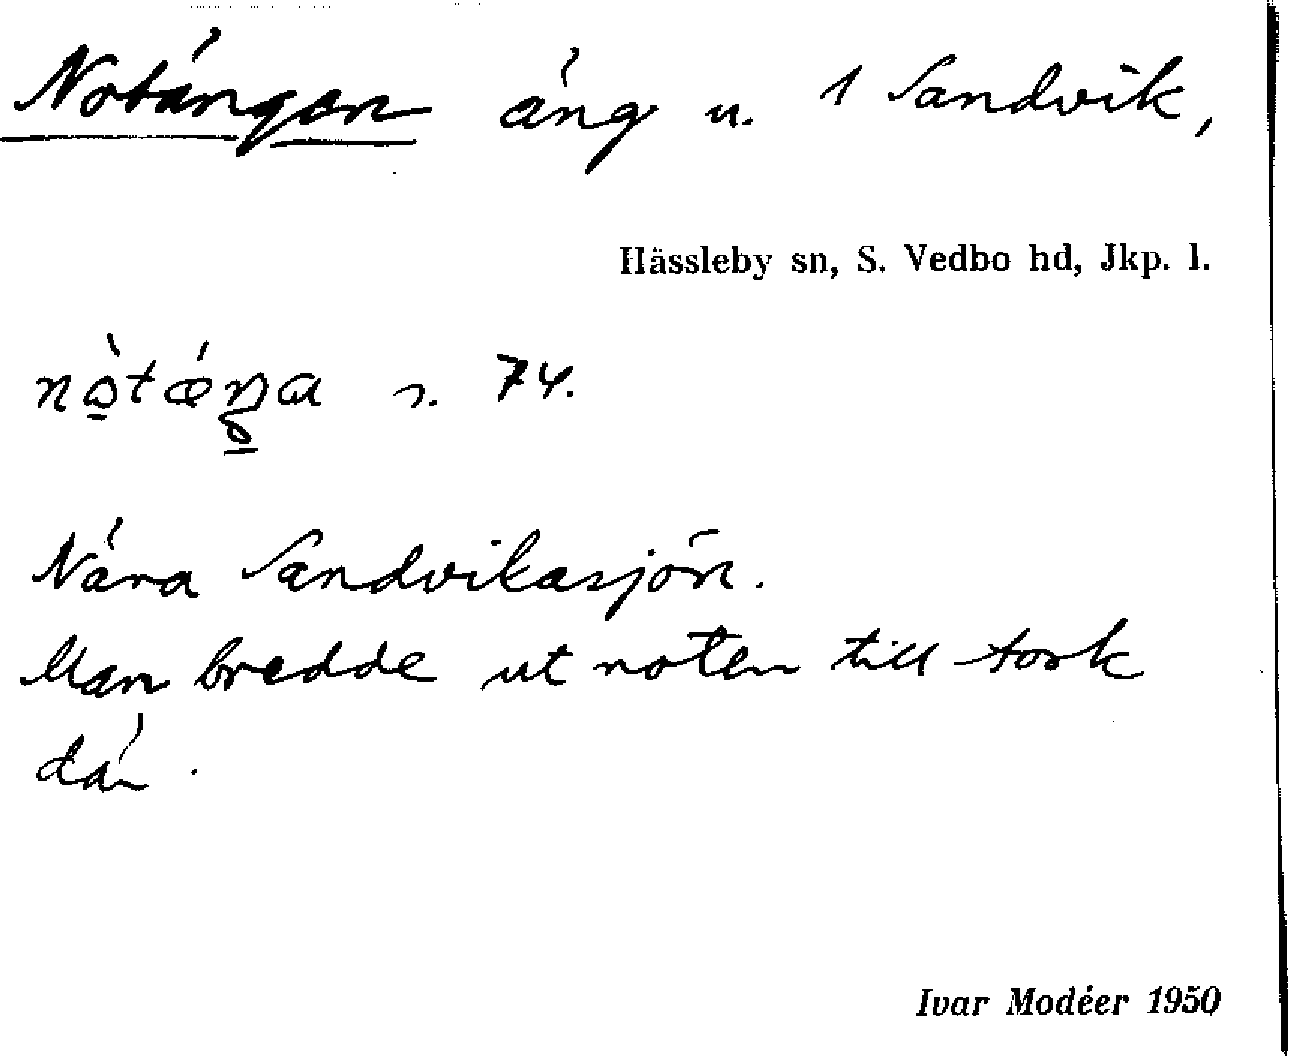 Notängen äng u. 1 Sandvik,
Hässleby sn, S. Vedbo hd, Jkp. l.
s. 74.
Nära Sandvikasjön.
Man bredde ut noten till tork
där.
Ivar Modéer 1950